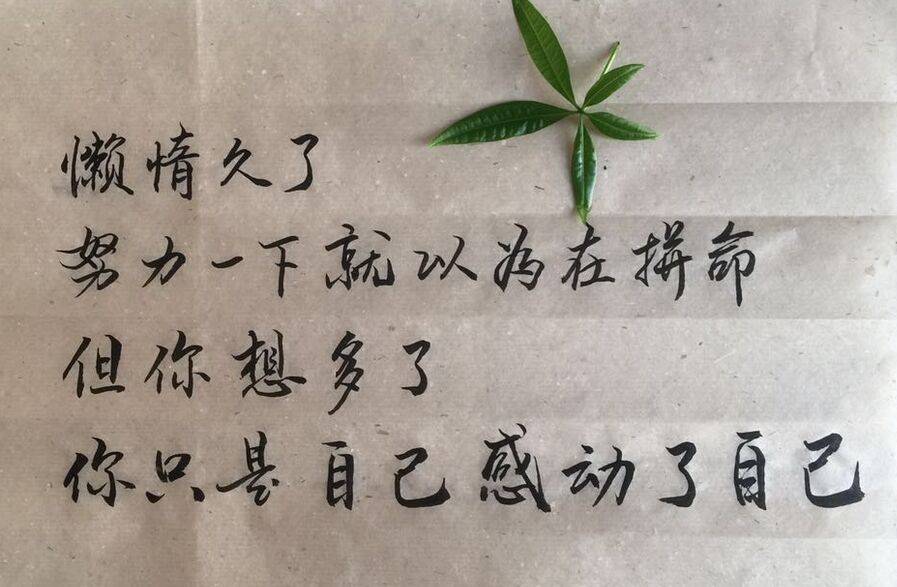 懒惰久了
努力一下就以为在拼命
但你想多了
你只是自己感动了自己